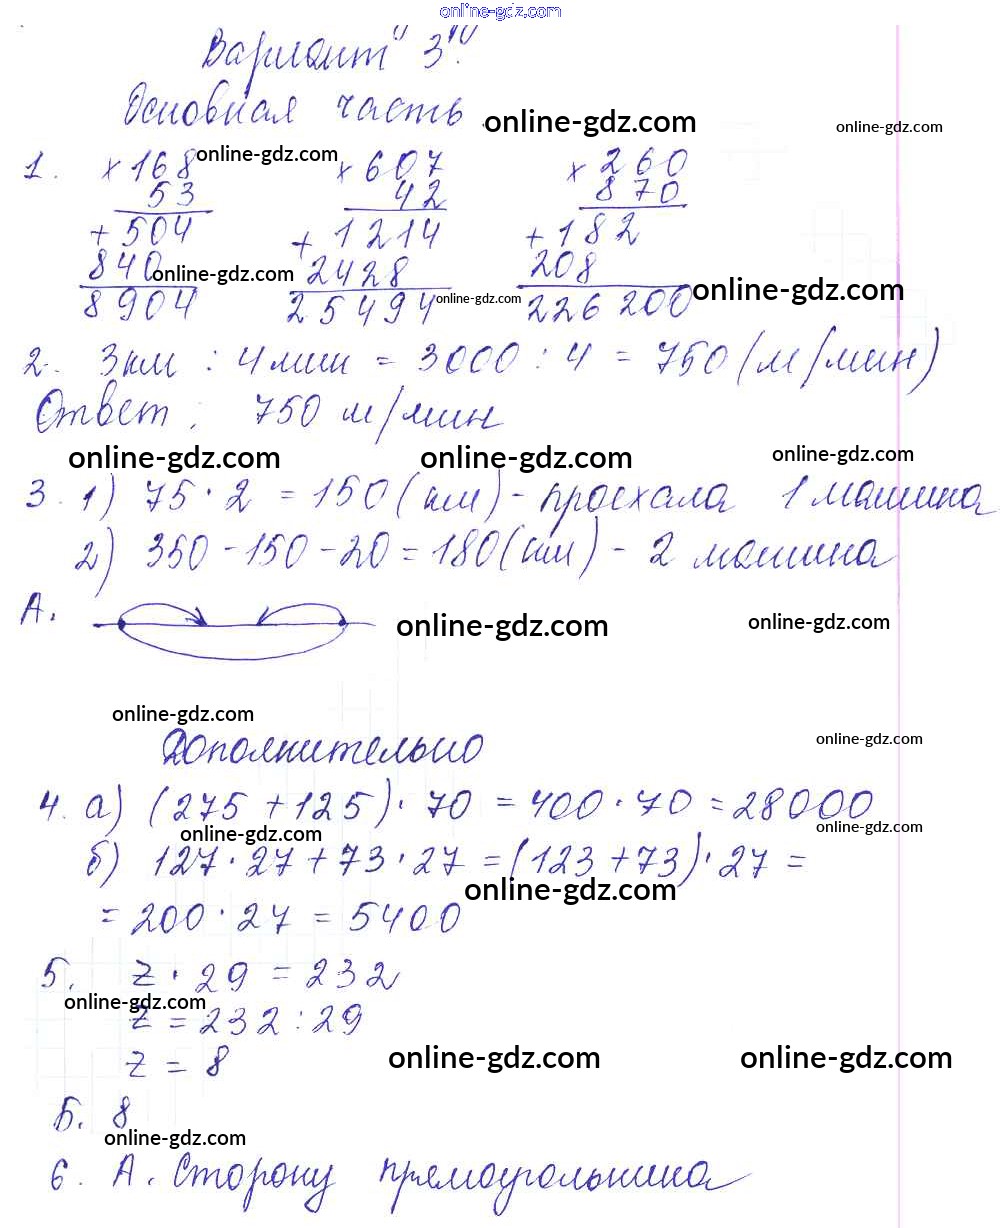 online-gdz.com
Вариант "3".
Основная часть.
online-gdz.com
online-gdz.com
1. × 168 × 607 × 260
online-gdz.com
53 42 870
+ 504 + 1214 + 182
840 2428 208
online-gdz.com
8904 25494 226200
online-gdz.com
online-gdz.com
2. 3 км : 4 мин = 3000 : 4 = 750 (м/мин)
Ответ: 750 м/мин
online-gdz.com online-gdz.com online-gdz.com
3. 1) 75 · 2 = 150 (км) - проехала 1 машина
2) 350 - 150 - 20 = 180 (км) - 2 машина
А.
online-gdz.com online-gdz.com
online-gdz.com
Дополнительно
online-gdz.com
4. а) (275 + 125) · 70 = 400 · 70 = 28000
online-gdz.com online-gdz.com
б) 127 · 27 + 73 · 27 = (123 + 73) · 27 =
online-gdz.com
= 200 · 27 = 5400
5. z · 29 = 232
online-gdz.com
z = 232 : 29
z = 8
online-gdz.com online-gdz.com
Б. 8
online-gdz.com
6. А. Сторону прямоугольника